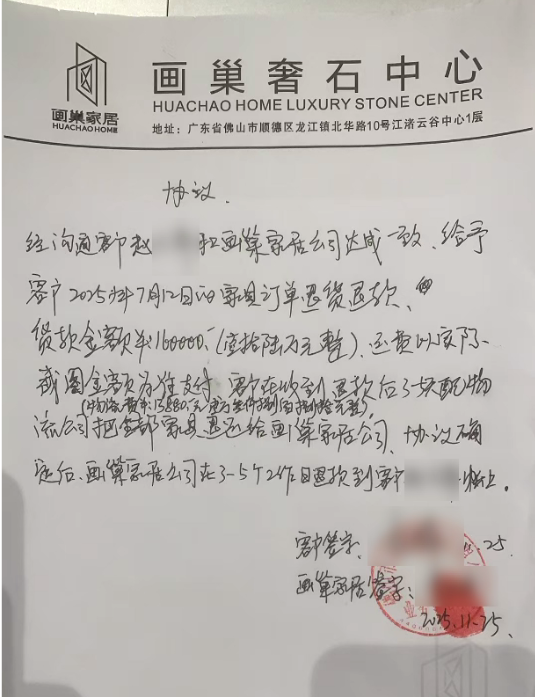 画巢奢石中心
HUACHAO HOME LUXURY STONE CENTER
画巢家居
HUACHAO HOME
地址：广东省佛山市顺德区龙江镇北华路10号江渚云谷中心1层
协议.
经沟通客户赵 和画巢家居公司达成一致、给予
客户2025年7月12日的家具订单退货退款、
货款金额¥:160000.-(壹拾陆万元整).运费以实际
截图金额为准支付 客户在收到退款后 配 物
(物流费¥:
流公司把全部家具退还给画巢家居公司、协议确
定后、画巢家居公司在3-5个工作日退款到客户 上.
客户签字: .25
画巢家居签字:
2025.11.25.